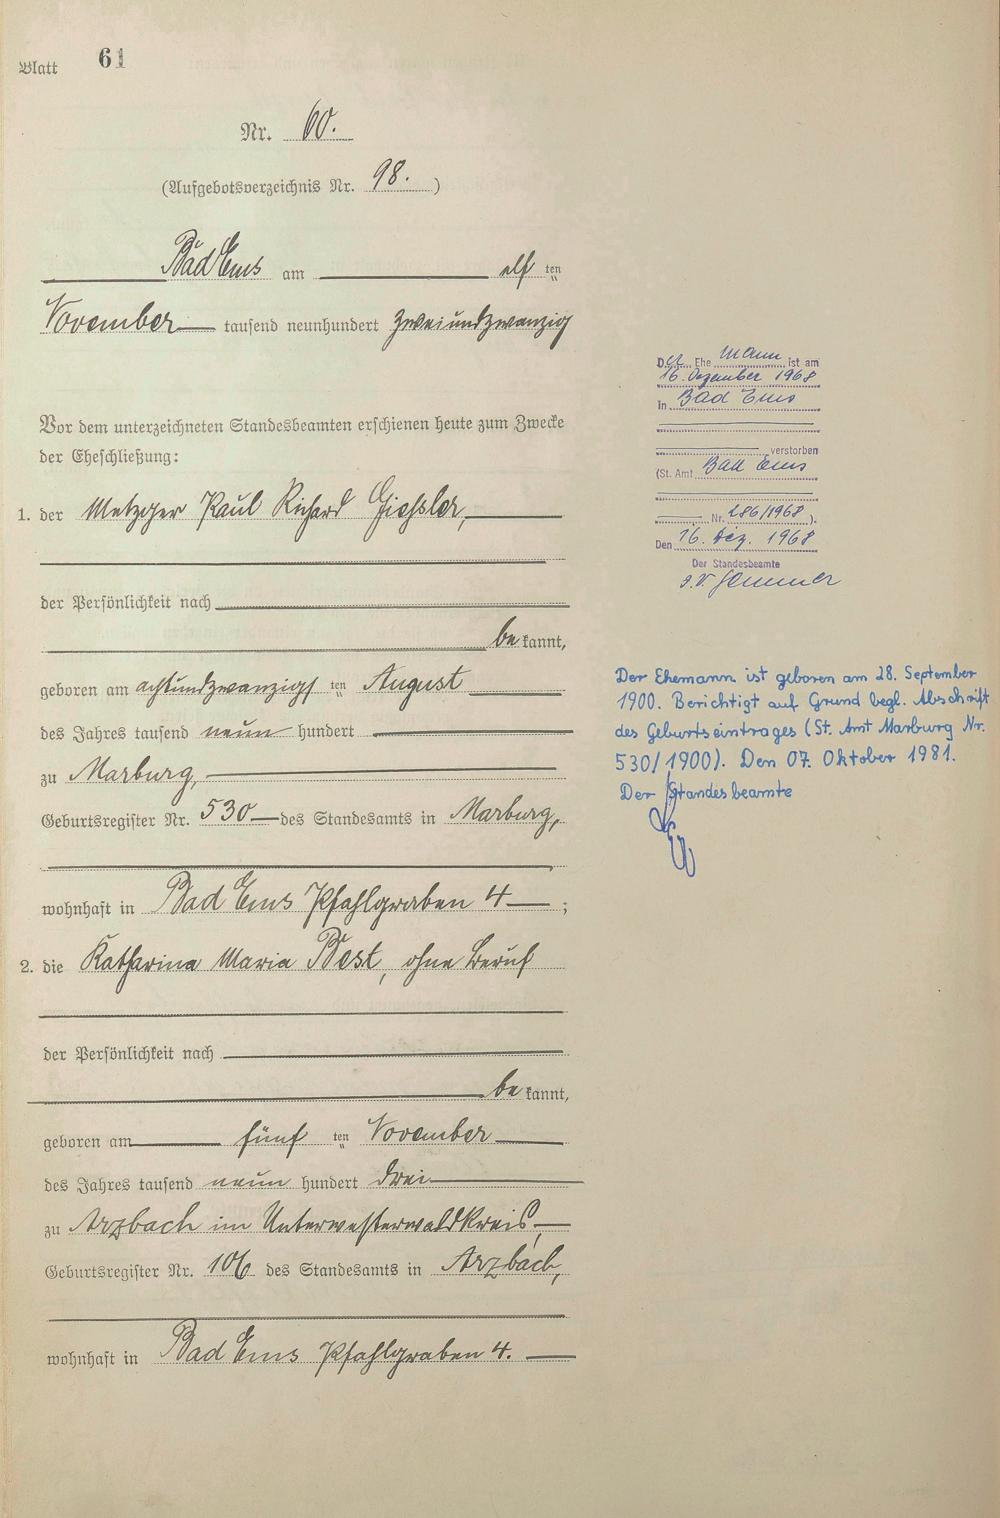 Blatt 61
Nr. 60.
(Aufgebotsverzeichnis Nr. 98.)
Bad Ems am elf ten
November tausend neunhundert zweiundzwanzig
Vor dem unterzeichneten Standesbeamten erschienen heute zum Zwecke
der Eheschließung:
1. der Metzger Paul Richard Giessler,
der Persönlichkeit nach
be kannt,
geboren am achtundzwanzigs ten August
des Jahres tausend neun hundert
zu Marburg,
Geburtsregister Nr. 530 des Standesamts in Marburg,
wohnhaft in Bad Ems Pfahlgraben 4 ;
2. die Katharina Maria Best, ohne Beruf
der Persönlichkeit nach
be kannt,
geboren am fünf ten November
des Jahres tausend neun hundert drei
zu Arzbach im Unterwesterwaldkreis,
Geburtsregister Nr. 106 des Standesamts in Arzbach,
wohnhaft in Bad Ems Pfahlgraben 4.
Der Ehe Mann ist am
16. Dezember 1968
in Bad Ems
verstorben
(St. Amt Bad Ems
Nr. 286/1968).
Den 16. Dez. 1968
Der Standesbeamte
Der Ehemann ist geboren am 28. September
1900. Berichtigt auf Grund begl. Abschrift
des Geburtseintrages (St. Amt Marburg Nr.
530/1900). Den 07. Oktober 1981.
Der Standesbeamte